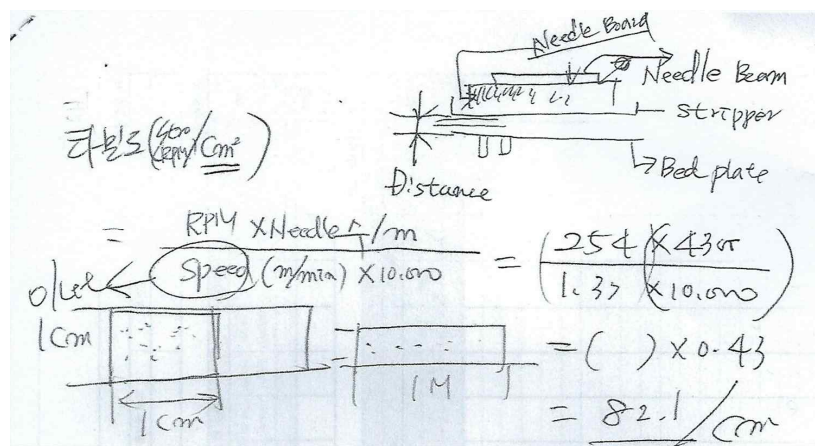 Needle Board
Needle Beam
Stripper
Bed plate
Distance
타밀도 (Stro RPM/Cm²)
= RPM × Needle 수/m
Speed (m/min) × 10.000
= (254 × 4300
1.33 × 10.000)
Outlet
1 Cm
1 Cm
=
1 M
= ( ) × 0.43
= 82.1 / Cm